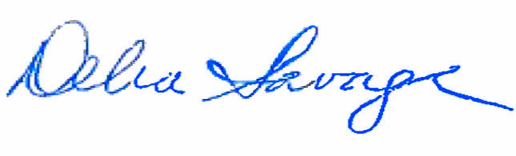 Delia Savage